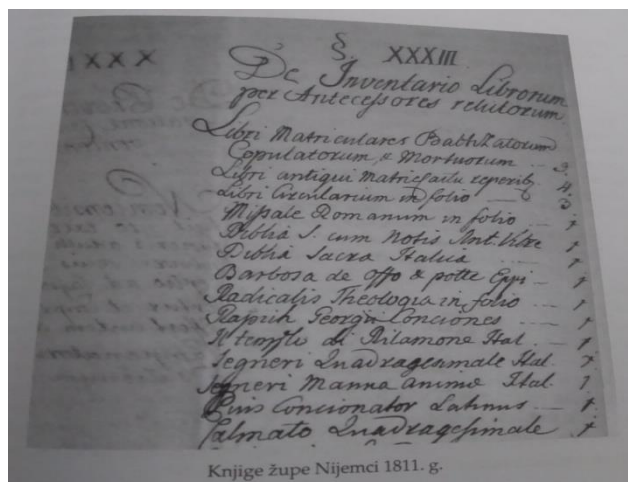 §. XXXIII
De Inventario Librorum
per Antecessores relictorum
Libri Matriculares Babtizatorum
Copulatorum, & Mortuorum ... 3.
Libri antiqui Matric 4.
Libri Circularium in folio 3
Missale Romanum in folio 1
Biblia S. cum Notis Ant. 1
Biblia Sacra Italica 1
Barbosa de offo & potte Eppi 1
Radicalis Theologia in folio 1
Georgii Conciones 1
Il templo di Hal. 1
Segneri Quadragesimale Ital. 1
Segneri Manna anime Ital. 1
Concionator Latinus 1.
Calmato Quadragesimale 1
Knjige župe Nijemci 1811. g.